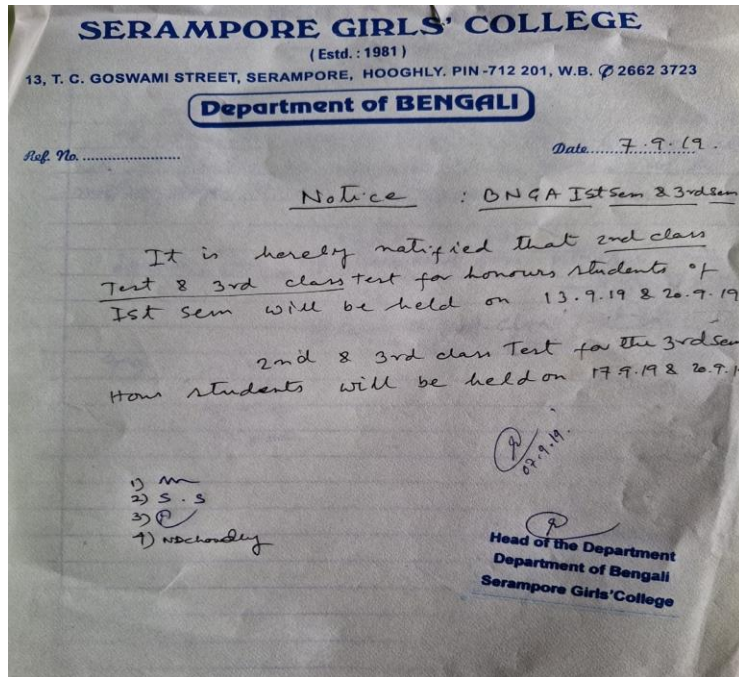 SERAMPORE GIRLS' COLLEGE
(Estd. : 1981)
13, T. C. GOSWAMI STREET, SERAMPORE, HOOGHLY. PIN-712 201, W.B. ✆ 2662 3723
Department of BENGALI
Ref. No. ........................... Date......7.9.19.
Notice : BNGA Ist Sem & 3rd sem
It is hereby notified that 2nd class
Test & 3rd class Test for honours students of
Ist sem will be held on 13.9.19 & 20.9.19
2nd & 3rd class Test for the 3rd sem
Hons students will be held on 17.9.19 & 20.9.1
07.9.19.
1)
2) S.S
3)
4) NDchowdhury
Head of the Department
Department of Bengali
Serampore Girls'College